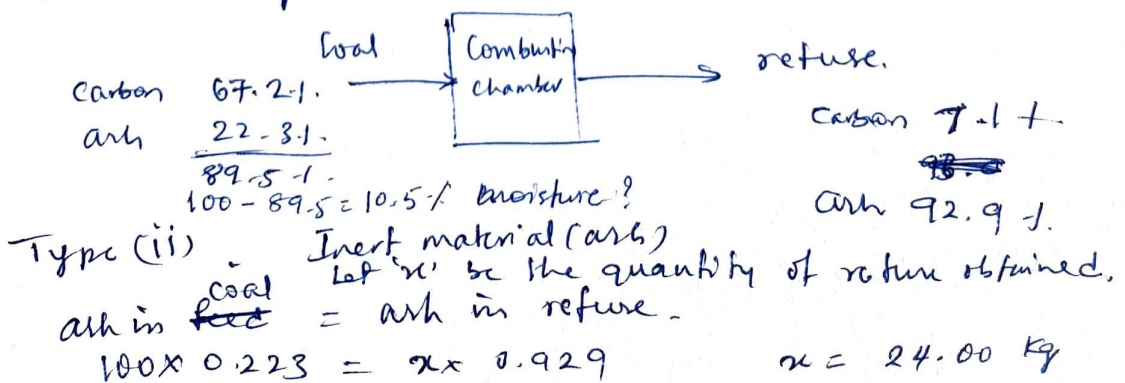 Coal
Combustin
chamber
refuse.
Carbon 67.2%.
ash 22.3%.
89.5%.
100 - 89.5 = 10.5% moisture?
Carbon 7.1%
ash 92.9%.
Type (ii) Inert material (ash)
Let 'x' be the quantity of refuse obtained.
ash in coal = ash in refuse.
100 x 0.223 = x x 0.929
x = 24.00 kg